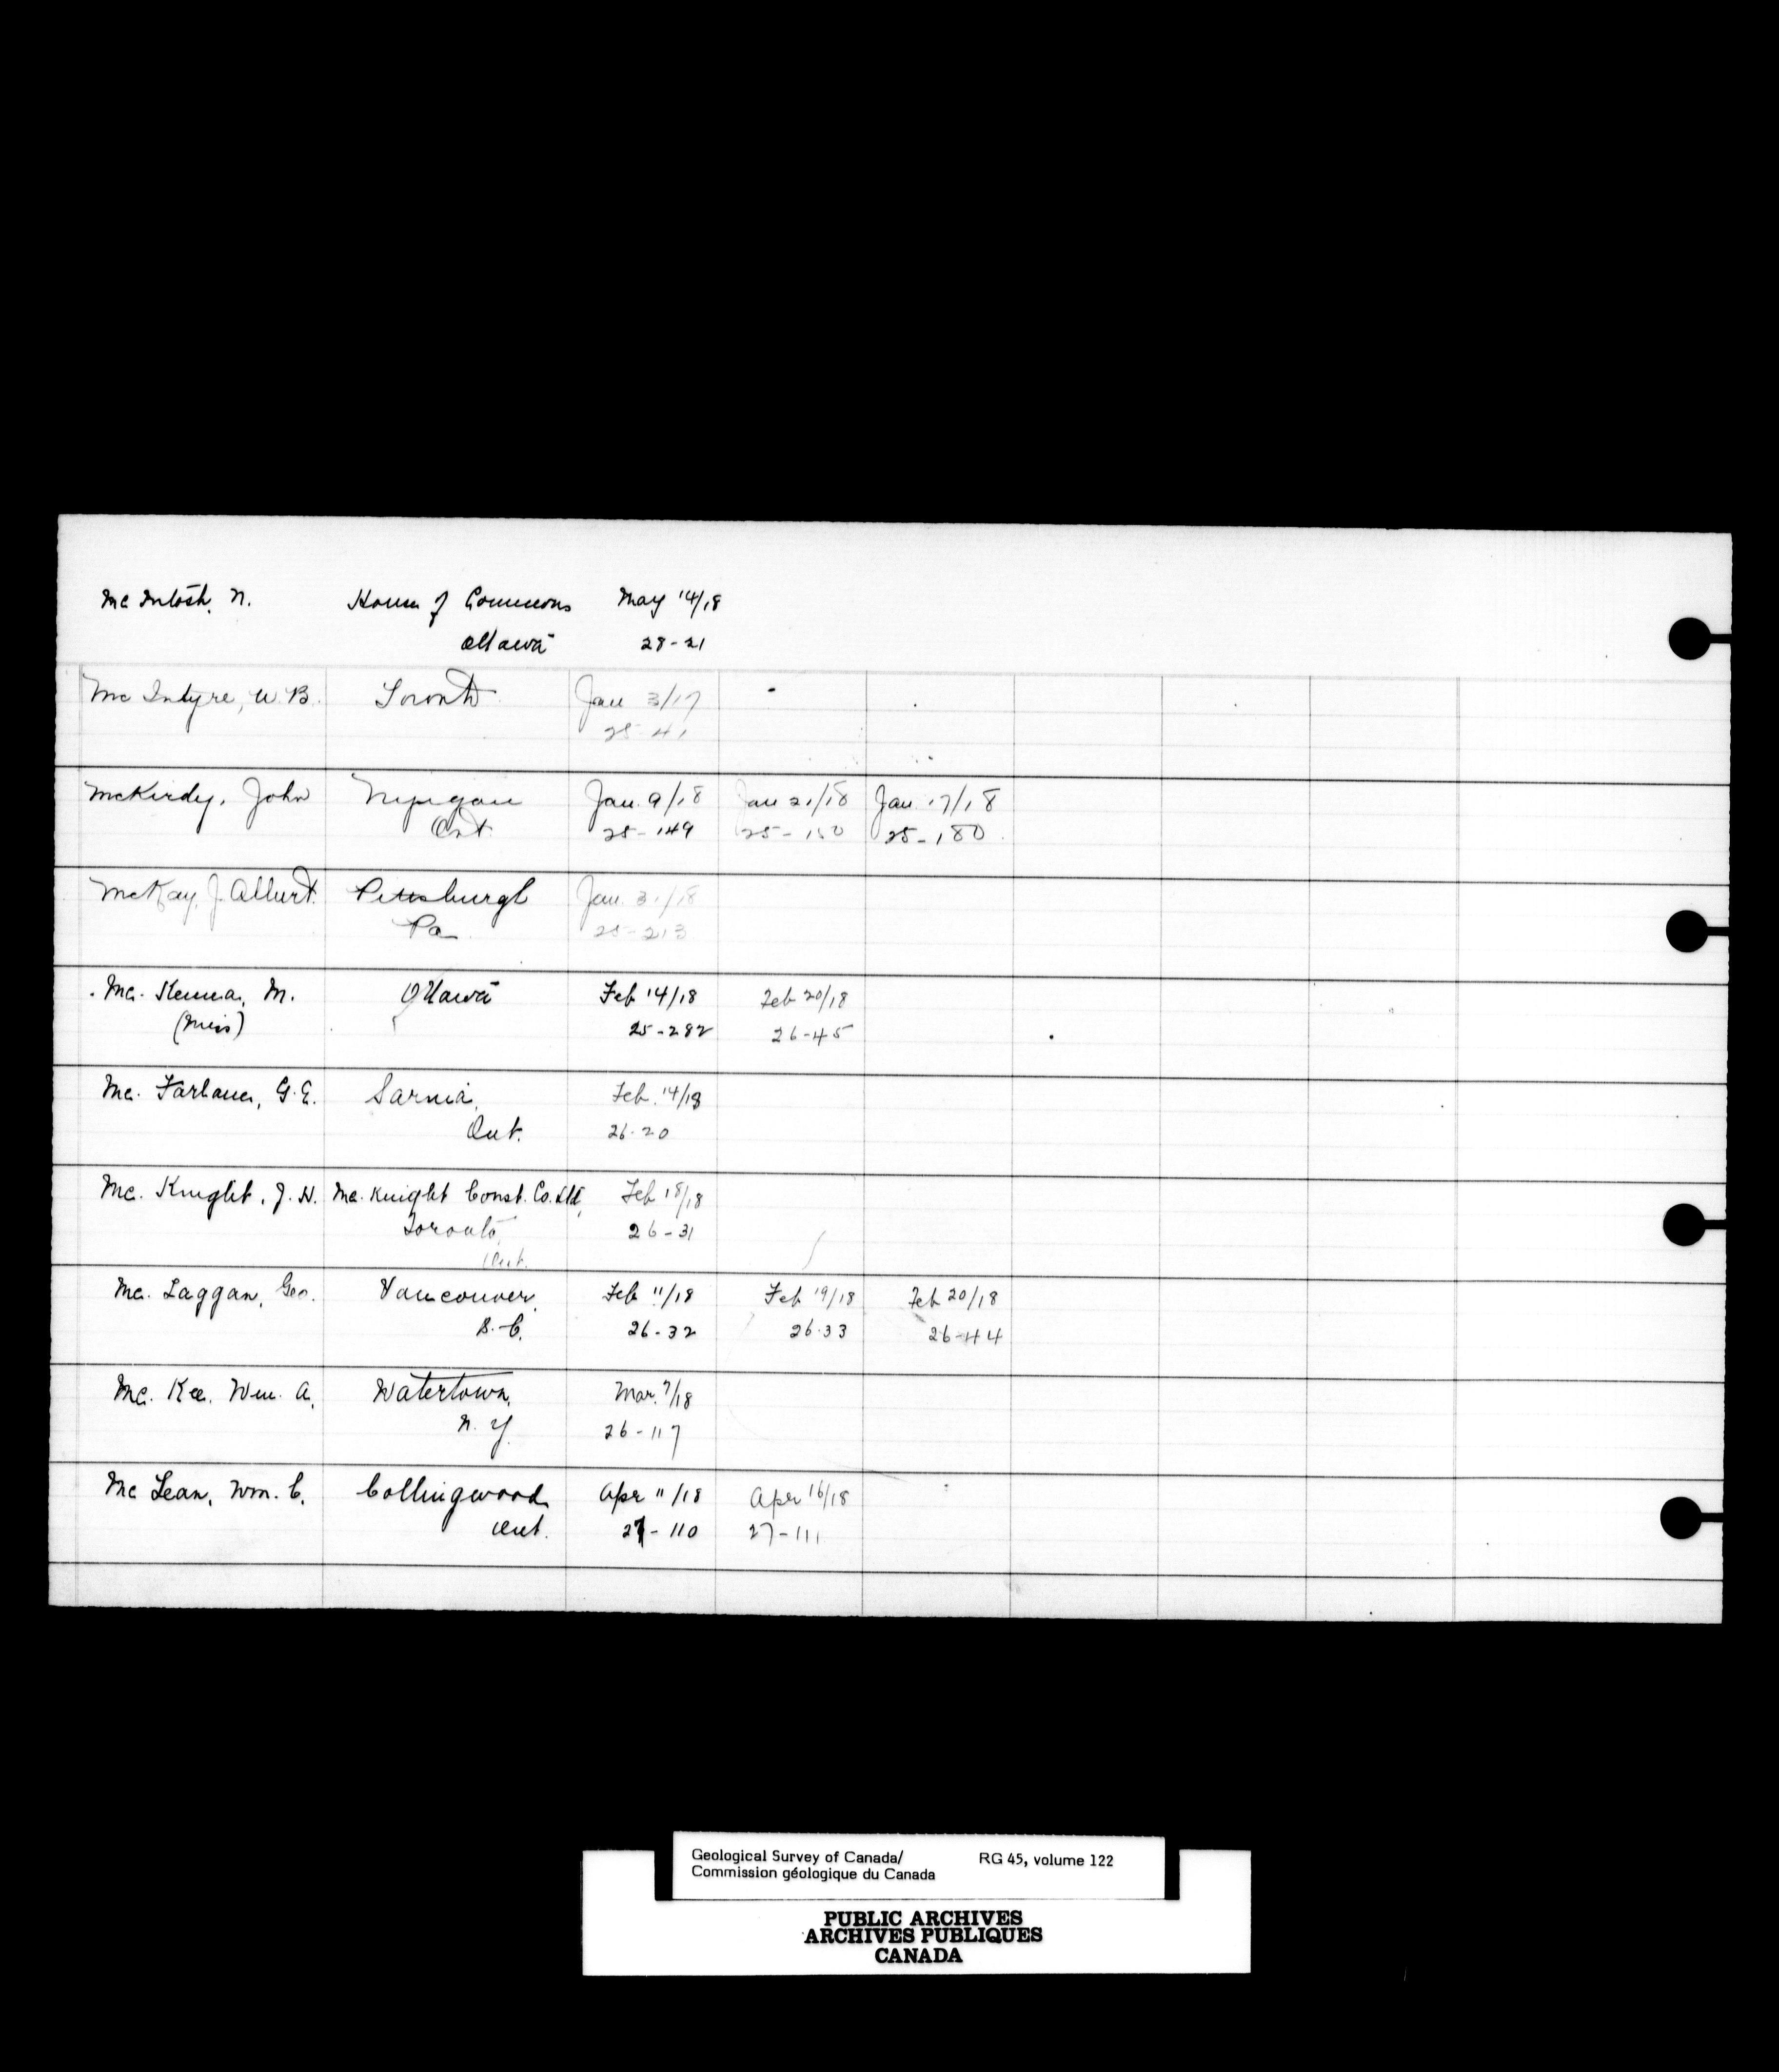 Mc Intosh, N. House of Commons May 14/18
Ottawa 28-21
Mc Intyre, W. B. Toronto Jan 3/17
25-41
McKirdy, John Nipigon Jan. 9/18 Jan 21/18 Jan. 17/18
Ont. 25-149 25-150 25-180
McKay, J. Albert Pittsburgh Jan. 31/18
Pa 25-213
Mc. Kenna, M. Ottawa Feb 14/18 Feb 20/18
(Miss) 25-282 26-45
Mc. Farlane, G. E. Sarnia, Feb. 14/18
Ont. 26-20
Mc. Knight, J. H. Mc. Knight Const. Co. Ltd, Feb 18/18
Toronto, 26-31
Ont.
Mc. Laggan, Geo. Vancouver, Feb 11/18 Feb 19/18 Feb 20/18
B.C. 26-32 26-33 26-44
Mc. Kee, Wm. A. Watertown, Mar. 7/18
N. Y. 26-117
Mc Lean, Wm. C. Collingwood, Apr 11/18 Apr 16/18
Ont. 27-110 27-111
Geological Survey of Canada/ RG 45, volume 122
Commission géologique du Canada
PUBLIC ARCHIVES
ARCHIVES PUBLIQUES
CANADA